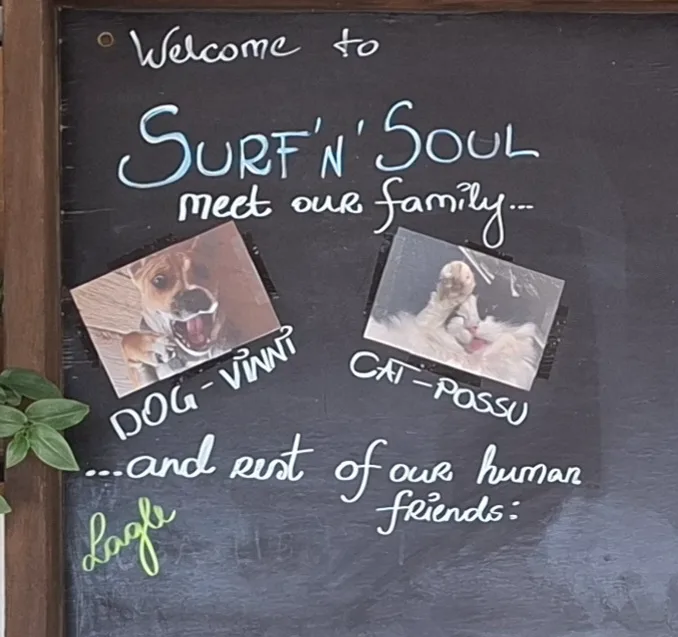 Welcome to
SURF'N'SOUL
meet our family...
DOG-VINNI
CAT-POSSU
...and rest of our human
friends:
Lagle